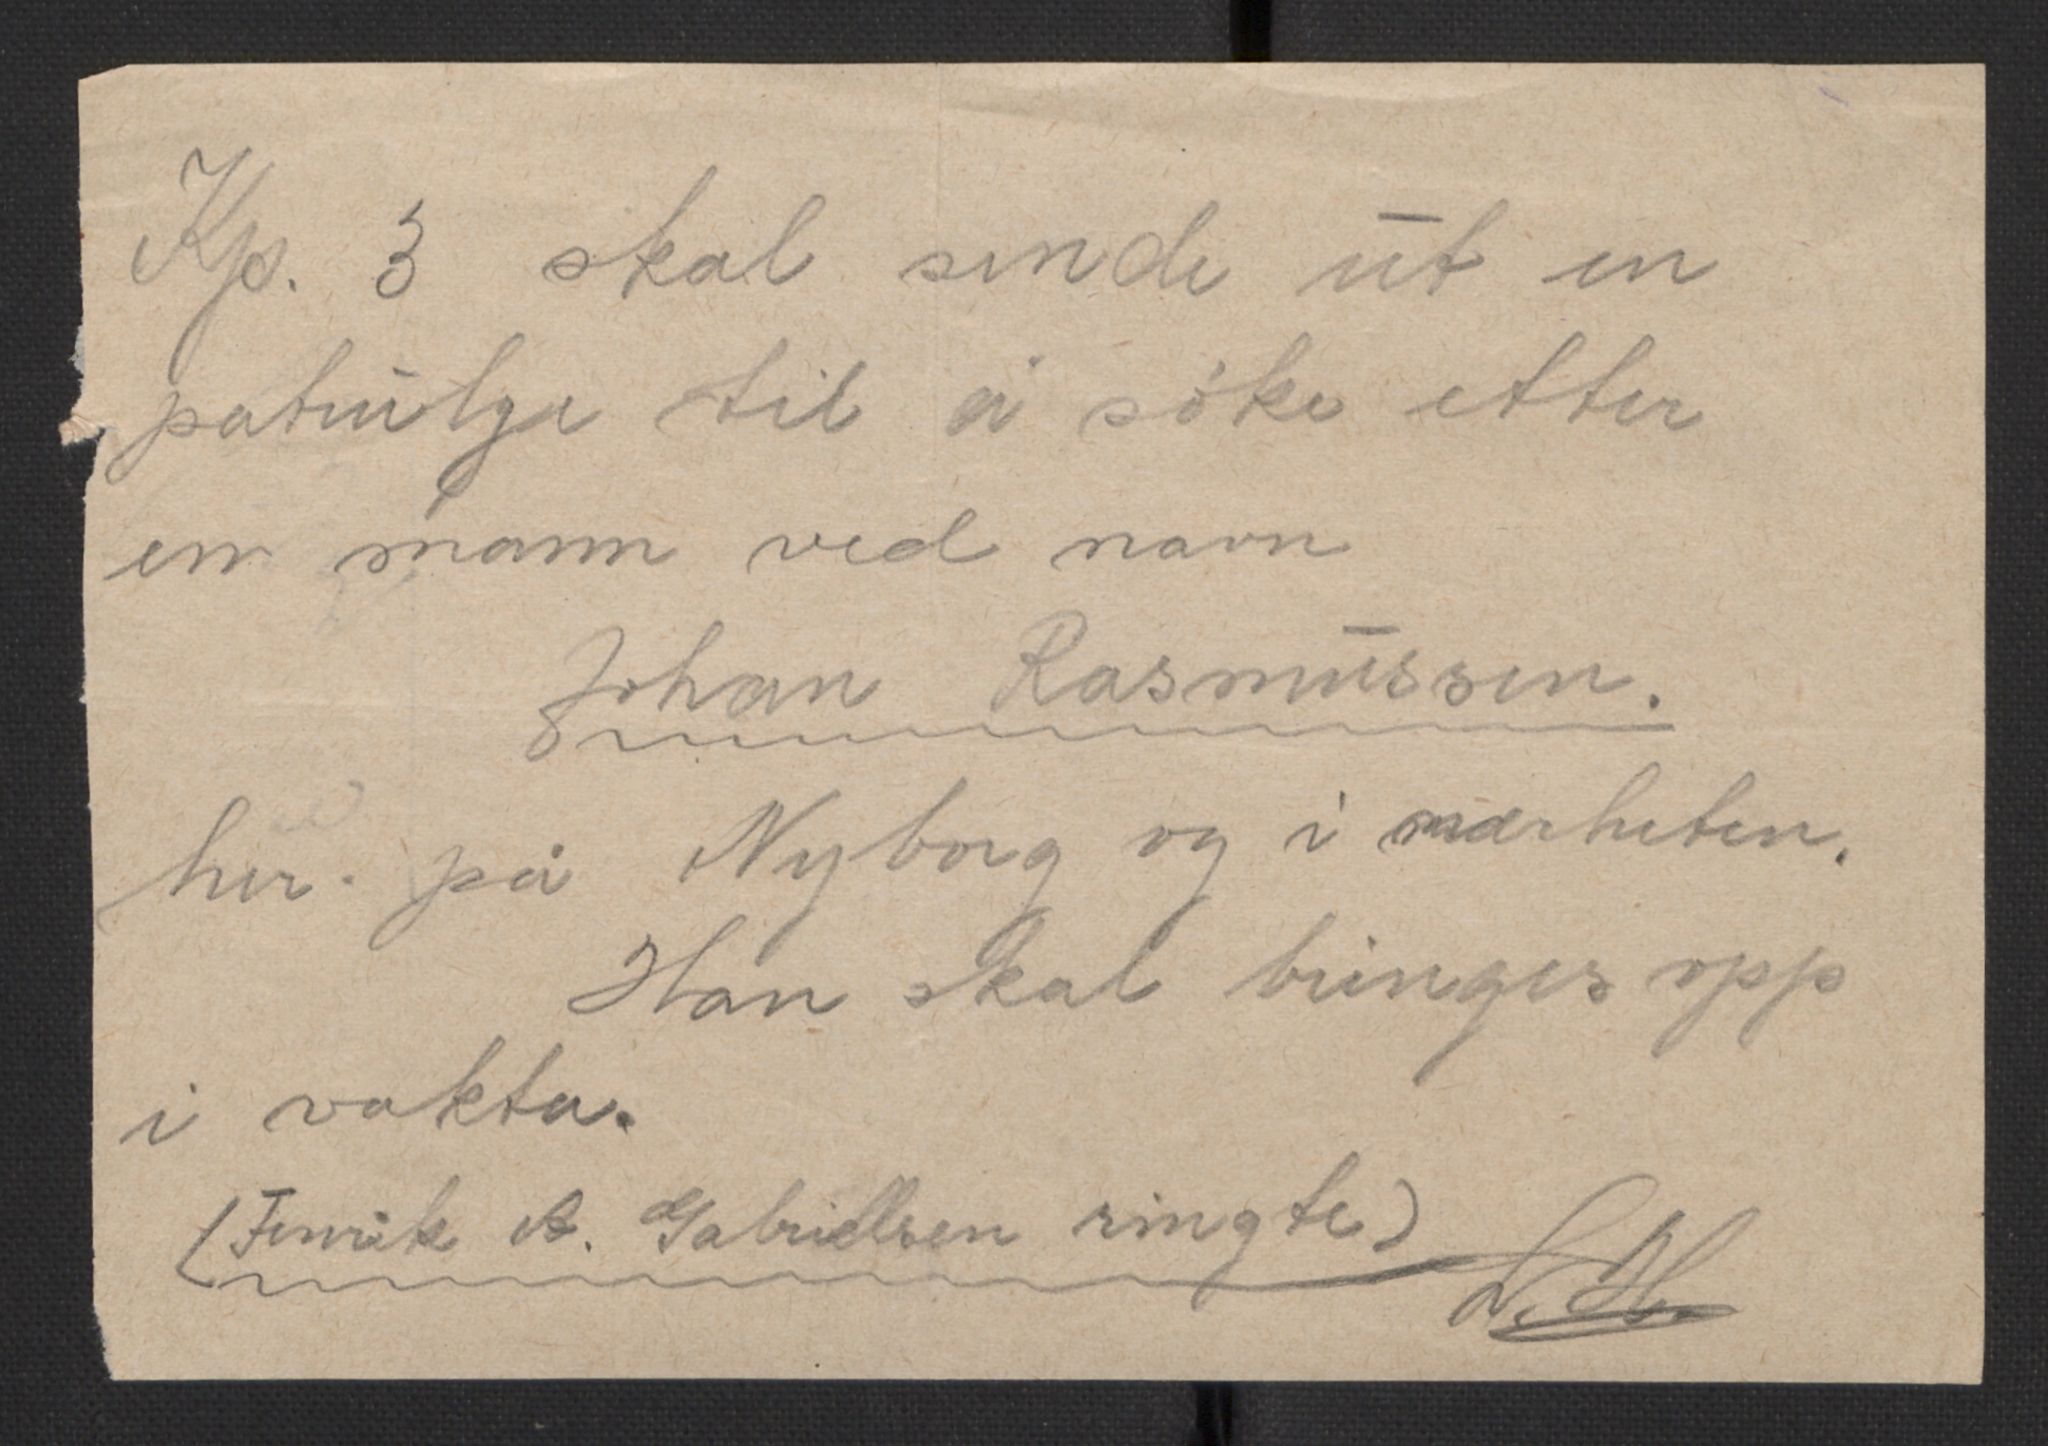 Kp. 3 skal sende ut en
patrulje til å söke etter
en mann ved navn
Johan Rasmussen.
her på Nyborg og i nærheten.
Han skal bringes opp
i vakta.
(Fenrik A. Gabrielsen ringte)
L.H.